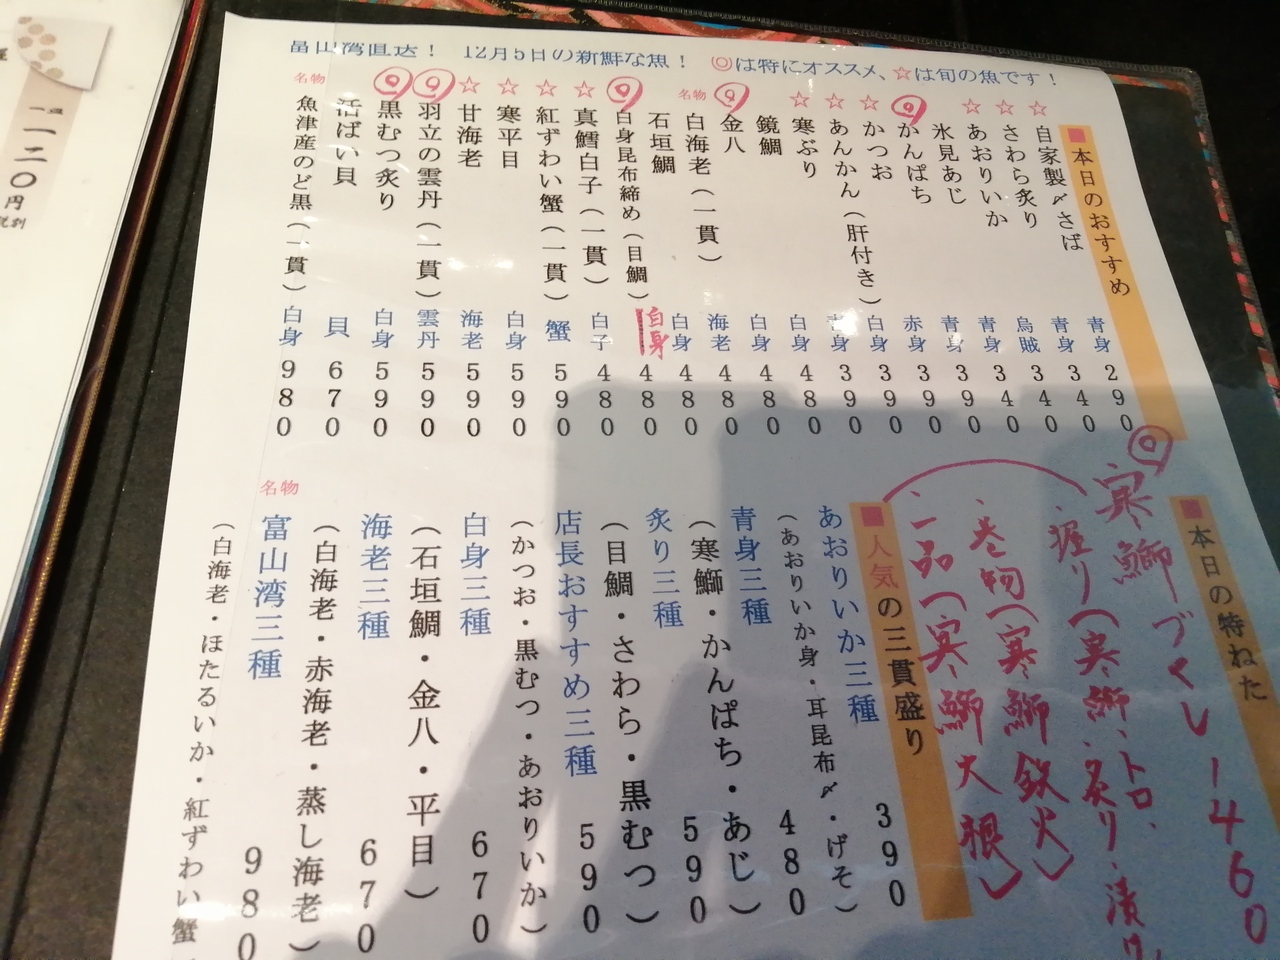 富山湾直送！ 12月5日の新鮮な魚！ ◎は特にオススメ、☆は旬の魚です！
■本日のおすすめ
☆自家製〆さば 青身 290
☆さわら炙り 青身 340
☆あおりいか 烏賊 340
氷見あじ 青身 340
◎かんぱち 青身 390
☆かつお 赤身 390
☆あんかん（肝付き） 白身 390
☆寒ぶり 青身 390
鏡鯛 白身 480
◎金八 白身 480
名物 白海老（一貫） 海老 480
石垣鯛 白身 480
◎白身昆布締め（目鯛） 白身 480
☆真鱈白子（一貫） 白子 480
☆紅ずわい蟹（一貫） 蟹 590
☆寒平目 白身 590
☆甘海老 海老 590
◎羽立の雲丹（一貫） 雲丹 590
◎黒むつ炙り 白身 590
活ばい貝 貝 670
名物 魚津産のど黒（一貫） 白身 980
■本日の特ねた
◎寒鰤づくし 1460
・握り（寒鰤・トロ・炙り・漬け
・巻物（寒鰤鉄火）
・一品（寒鰤大根）
■人気の三貫盛り
あおりいか三種 390
（あおりいか身・耳昆布〆・げそ）
480
青身三種
（寒鰤・かんぱち・あじ）
590
炙り三種
（目鯛・さわら・黒むつ）
店長おすすめ三種 590
（かつお・黒むつ・あおりいか）
白身三種 670
（石垣鯛・金八・平目）
海老三種 670
（白海老・赤海老・蒸し海老）
名物 富山湾三種 980
（白海老・ほたるいか・紅ずわい蟹
一二〇円